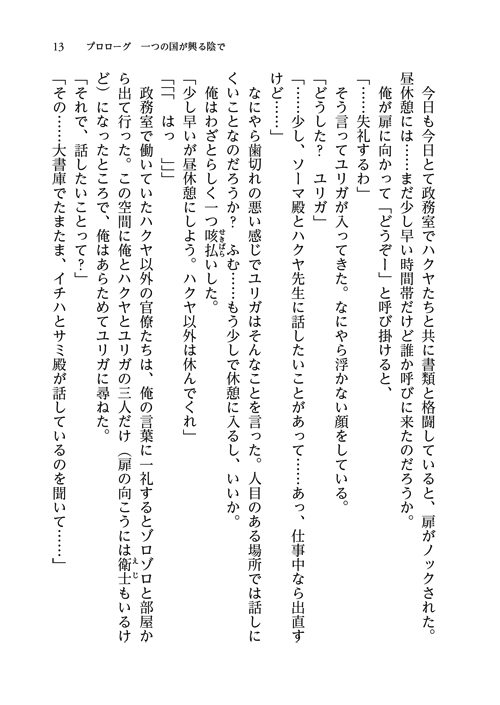 13　プロローグ　一つの国が興る陰で
　今日も今日とて政務室でハクヤたちと共に書類と格闘していると、扉がノックされた。
昼休憩には……まだ少し早い時間帯だけど誰か呼びに来たのだろうか。
　俺が扉に向かって「どうぞー」と呼び掛けると、
「……失礼するわ」
　そう言ってユリガが入ってきた。なにやら浮かない顔をしている。
「どうした？　ユリガ」
「……少し、ソーマ殿とハクヤ先生に話したいことがあって……あっ、仕事中なら出直す
けど……」
　なにやら歯切れの悪い感じでユリガはそんなことを言った。人目のある場所では話しに
くいことなのだろうか？　ふむ……もう少しで休憩に入るし、いいか。
　俺はわざとらしく一つ咳払いした。
せきばら
「少し早いが昼休憩にしよう。ハクヤ以外は休んでくれ」
「「「　はっ　」」」
　政務室で働いていたハクヤ以外の官僚たちは、俺の言葉に一礼するとゾロゾロと部屋か
ら出て行った。この空間に俺とハクヤとユリガの三人だけ（扉の向こうには衛士もいるけ
えじ
ど）になったところで、俺はあらためてユリガに尋ねた。
「それで、話したいことって？」
「その……大書庫でたまたま、イチハとサミ殿が話しているのを聞いて……」